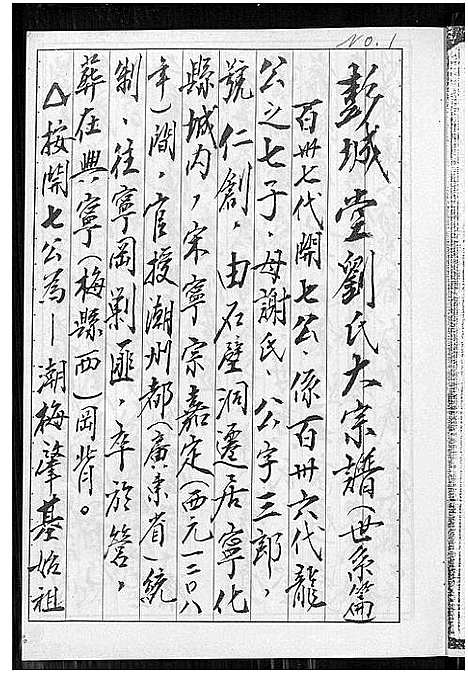 No. 1
彭城堂劉氏大宗譜(世系篇)
百卅七代開七公、係百卅六代龍
公之七子、母謝氏、公字三郎,
號仁創,由石壁洞遷居寧化
縣城內,宋寧宗嘉定(西元一二〇八
年)間,官授潮州都(廣東省)統
制、往寧岡剿匪,卒於營,
葬在興寧(梅縣西)岡背。
△按開七公為—潮梅肇基始祖